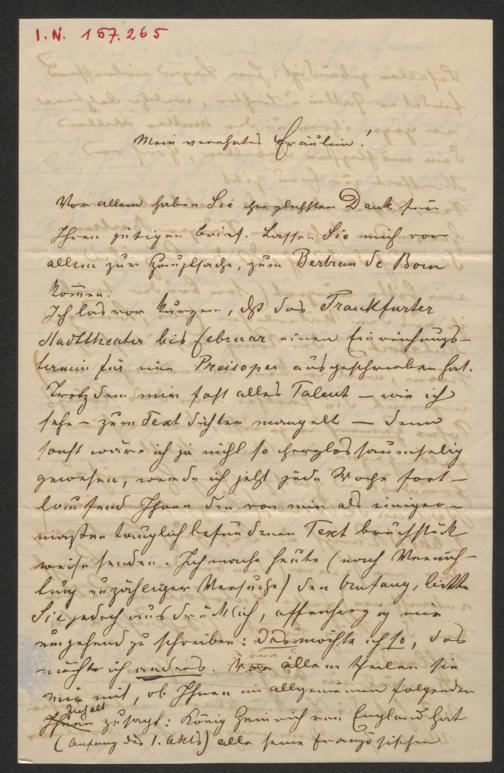 I.N. 157.265
Mein verehrtes Fräulein!
Vor allem haben Sie herzlichsten Dank für
Ihren gütigen Brief. Lassen Sie mich vor
allem zur Hauptsache, zum Bertran de Born
kommen.
Ich las vor Kurzem, daß das Frankfurter
Stadttheater bis Februar einen Einreichungs-
termin für eine Preisoper ausgeschrieben hat.
Trotzdem mir fast alles Talent – wie ich
sehe – zum Text dichten mangelt – denn
sonst wäre ich ja nicht so saumselig
gewesen, werde ich jetzt jede Woche fort-
laufend Ihnen den von mir als einiger-
maßen tauglich befundenen Text bruchstück
weise senden. Ich mache heute (nach Vernich-
tung unzähliger Versuche) den Anfang, bitte
Sie jedoch ausdrücklich, offenherzig mir
umgehend zu schreiben: das möchte ich so, das
möchte ich anders. Vor allem theilen Sie
mir mit, ob Ihnen im allgemeinen folgender
Inhalt
zusagt: König Heinrich von England hat
(Anfang des 1. Akts) alle seine französischen